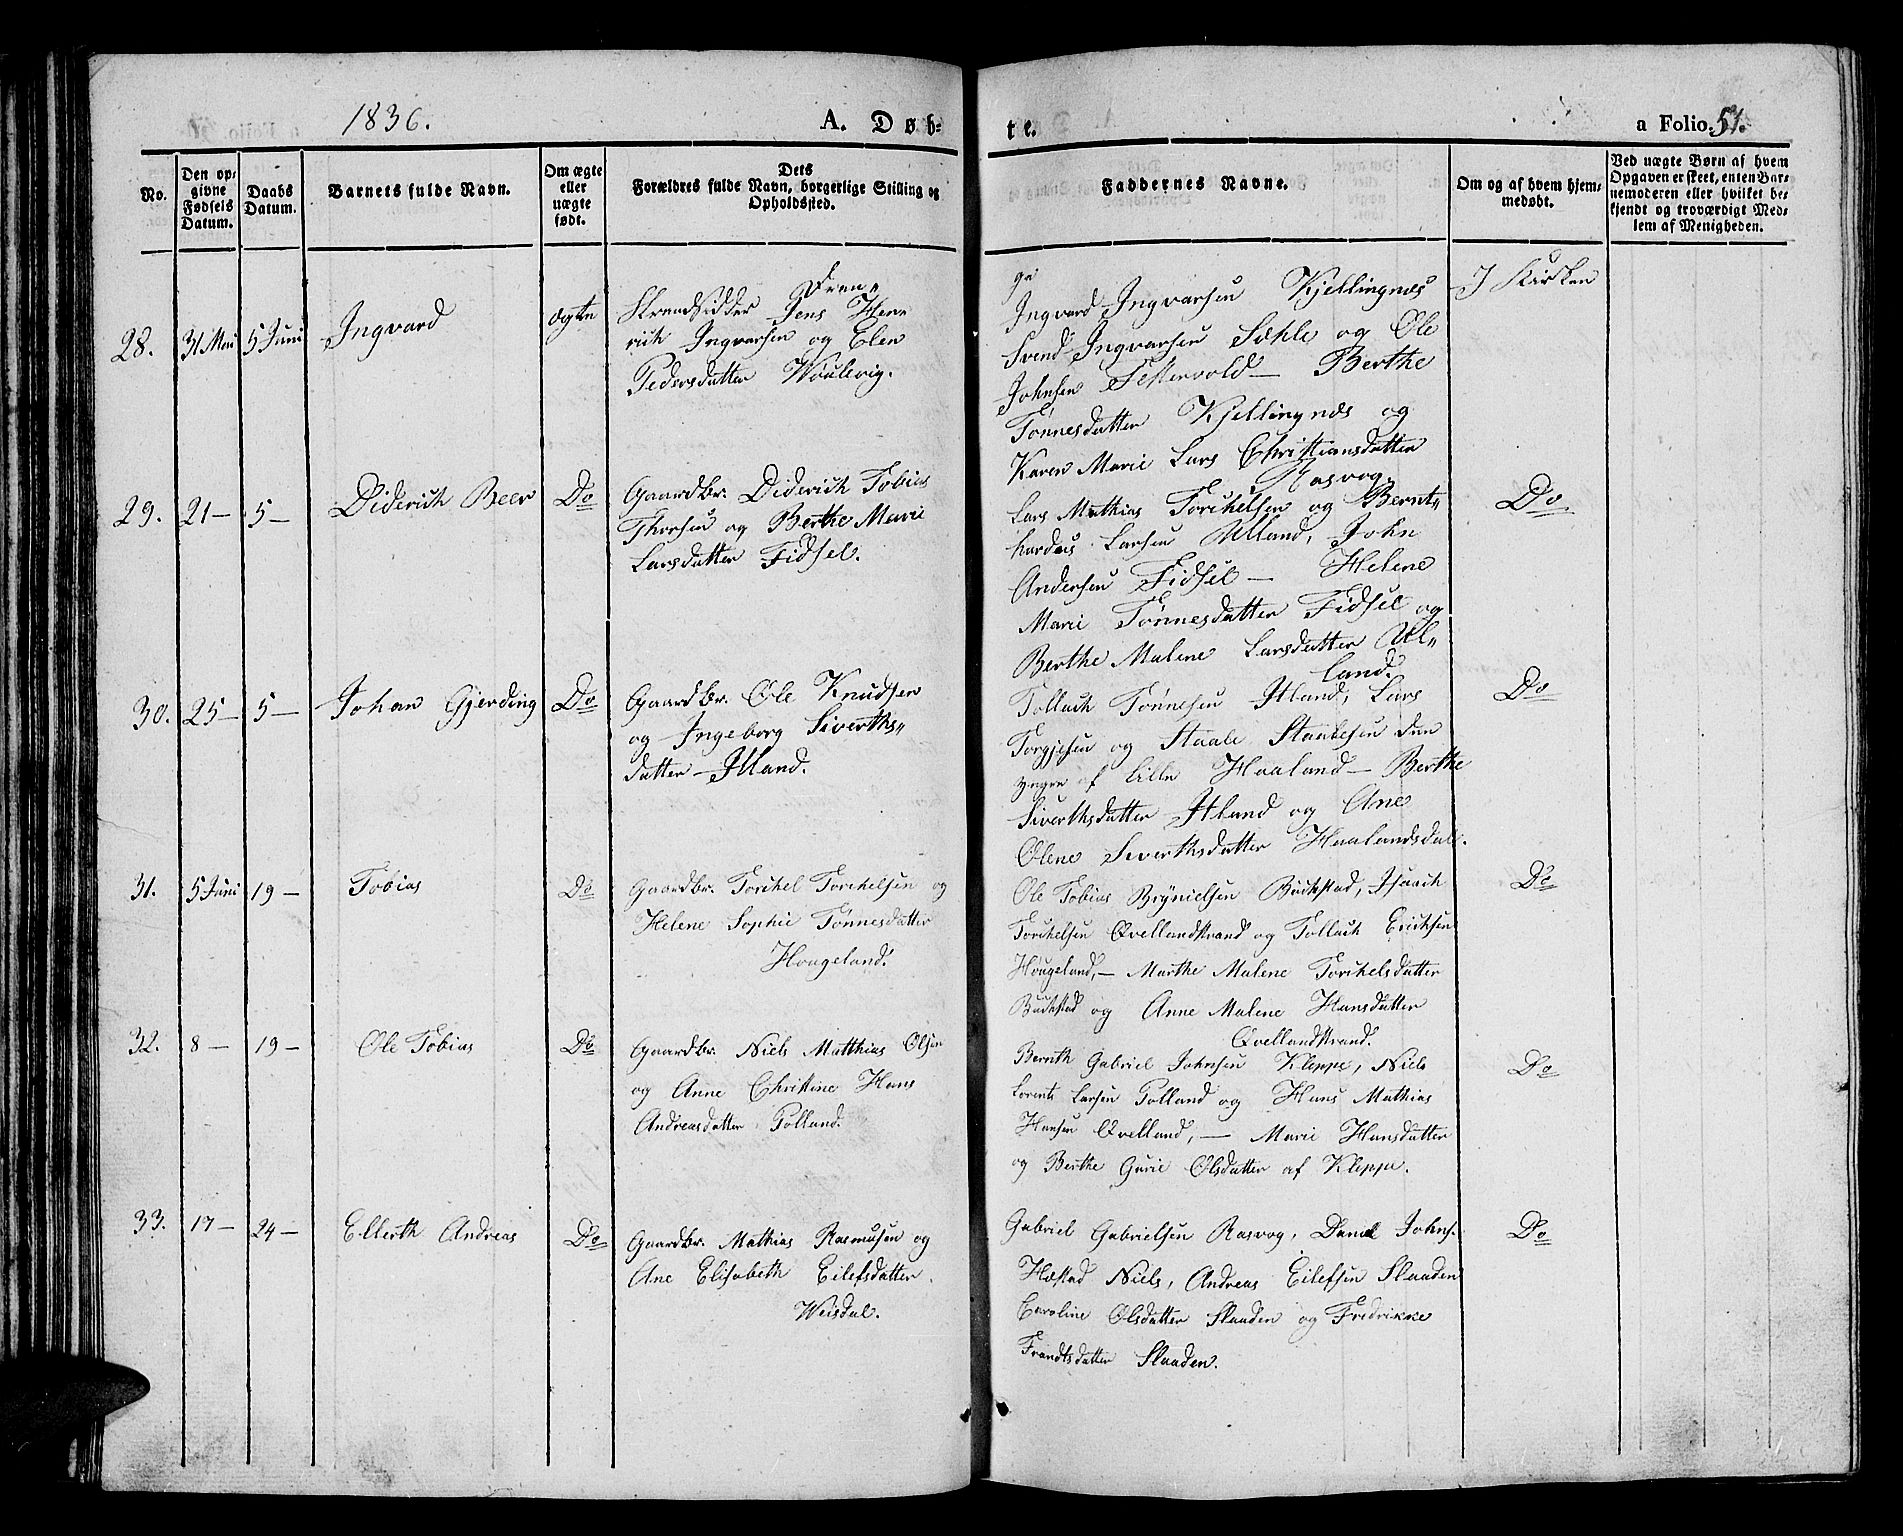 1836.
A. Døb-
te.
a Folio. 51.
No.
Den op-
givne
Fødsels
Datum.
Daabs
Datum.
Barnets fulde Navn.
Om ægte
eller
uægte
født.
Dets
Forældres fulde Navn, borgerlige Stilling og
Opholdssted.
Faddernes Navne.
Om og af hvem hjem-
medøbt.
Ved uægte Børn af hvem
Opgaven er skeet, enten Bar-
nemoderen eller hvilket be-
kjendt og troværdigt Med-
lem af Menigheden.
28.
31 Mai
5 Juni
Ingvard
ægte
Strandsidder Jens Hen-
rich Ingvarsen og Elen
Pedersdatter
Ingvard Ingvarsen Kjellingnæs
Svend Ingvarsen Sæhle og Ole
Johnsen Festervold — Berthe
Tønnesdatter Kjellingnæs og
Karen Marie Lars Christiansdatter
Rasvog.
I Kirken
29.
21 —
5 —
Diderich Beer
Do
Gaardbr. Diderich Tobias
Thorsen og Berthe Marie
Larsdatter Fidsel.
Lars Mathias Torchelsen og Bernt-
hardus Larsen Ulland, John
Andersen Fidsel — Helene
Marie Tønnesdatter Fidsel og
Berthe Malene Larsdatter Ul-
land.
Do
30.
25 —
5 —
Johan Gjerding
Do
Gaardbr. Ole Knudsen
og Ingeborg Siverths-
datter Itland.
Tollach Tønnesen Itland, Lars
Torgjesen og Staale Staalesen den
yngre af Lille Haaland — Berthe
Siverthsdatter Itland og Ane
Olene Siverthsdatter Haalandsdal.
Do
31.
5 Juni
19 —
Tobias
Do
Gaardbr. Torchel Torchelsen og
Helene Sophie Tønnesdatter
Hougeland.
Ole Tobias Brynielsen Buchstad, Isaach
Torchelsen Qvellandstrand og Tollach Erichsen
Hougeland, — Marthe Malene Torchelsdatter
Buchstad og Anne Malene Hansdatter
Qvellandstrand.
Do
32.
8 —
19 —
Ole Tobias
Do
Gaardbr. Niels Matthias Olsen
og Anne Christine Hans
Andreasdatter Polland.
Bernth Gabriel Johnsen Kleppe, Niels
Lorents Larsen Polland og Hans Mathias
Hansen Qvelland, — Marie Hansdatter
og Berthe Gurie Olsdatter af Kleppe.
Do
33.
17 —
24 —
Ellerth Andreas
Do
Gaardbr. Mathias Rasmusen og
Ane Elisabeth Eilefsdatter
Weisdal.
Gabriel Gabrielsen Rasvog, Daniel Johns.
Hæstad Niels, Andreas Eilefsen Staaden
Caroline Olsdatter Staaden og Fredrikke
Frandtsdatter Staaden.
Do